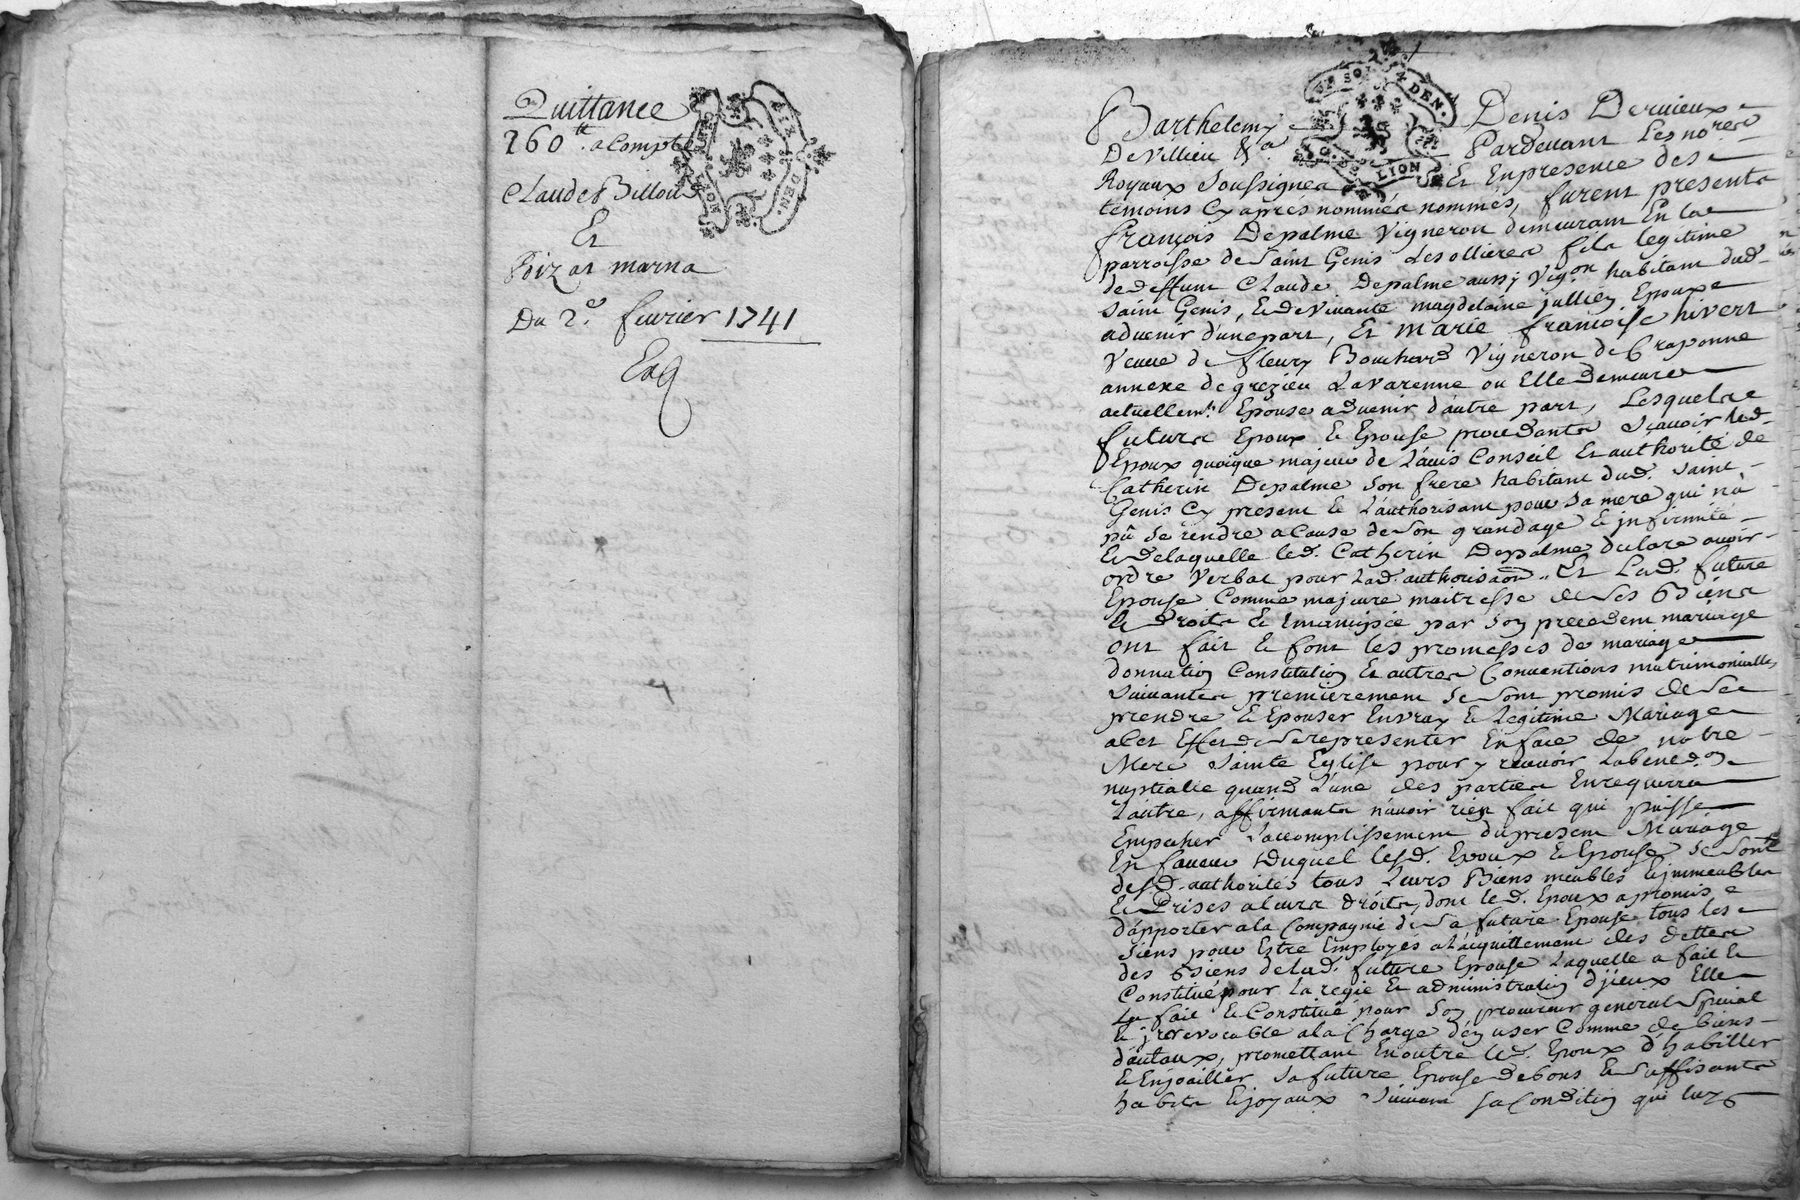 Quittance
260.tt a Compte
Claude Billoud
Et
Bizat marna
Du 2.e fevrier 1741
Exq
DEN.
LION
SIX DEN.
Barthelemy Denis Dervieux
De Villieu &a Pardevant Les no.res
Royaux Soussignes Et En presence des
temoins Cy apres nommés nommés, furent presents
françois Depalme Vigneron demeurant En la
parroisse de Saint Genis Les ollieres fils legitime
de deffunt Claude Depalme aussy Vig.on habitant dud.
Saint Genis, Et de Vivante magdelaine jullien Epoux
advenir d'une part, Et Marie françoise hivert
Veuve de fleury Bouchard Vigneron de Craponne
annexe de grezieu La Varenne ou Elle demeure
actuellem.t Epouse advenir d'autre part, Lesquels
futurs Epoux & Epouse procedants Sçavoir led.
Epoux quoique majeur de L'avis Conseil Et authorité de
Catherin Depalme Son frere habitant dud. Saint
Genis Cy present & L'authorisant pour Sa mere qui n'a
pû Se rendre a Cause de Son grandage & jnfirmité
& de laquelle led. Catherin Depalme declare avoir
ordre Verbal pour Lad. authorisaon .. Et Lad. future
Epouse Comme majeure maitresse de Ses Biens
& Droits & Emancipée par Son precedent mariage
ont fait & font les promesses de mariage
donnation Constitution Et autres Conventions matrimonialles
Suivantes premierement Se Sont promis de Se
prendre & Epouser En vray & Legitime Mariage
a Cet Effet de Se representer En face de notre
Mere Sainte Eglise pour y recevoir La bened.on
nuptialle quand L'une des parties En requerra
L'autre, affirmants n'avoir rien fait qui puisse
Empecher L'accomplissement du present Mariage
En faveur Duquel lesd. Epoux & Epouse Se Sont
desd. authorités tous Leurs Biens meubles & jmmeubles
& Prises a Leurs droits, dont led. Epoux a promis
d'apporter a la Compagnie de Sa future Epouse tous les
Siens pour Estre Employés a L'acquittement des dettes
des Biens de Lad. future Epouse Laquelle a fait &
Constitué pour La regie & administration d'jceux Elle
La fait & Constitué pour Son procureur general Special
& jrrevocable a la Charge d'en user Comme de biens
dautaux, promettant En outre led. Epoux d'habiller
& Enjoailler Sa future Epouse de bons & Suffisants
habits & joyaux Suivant Sa Condition qui luy